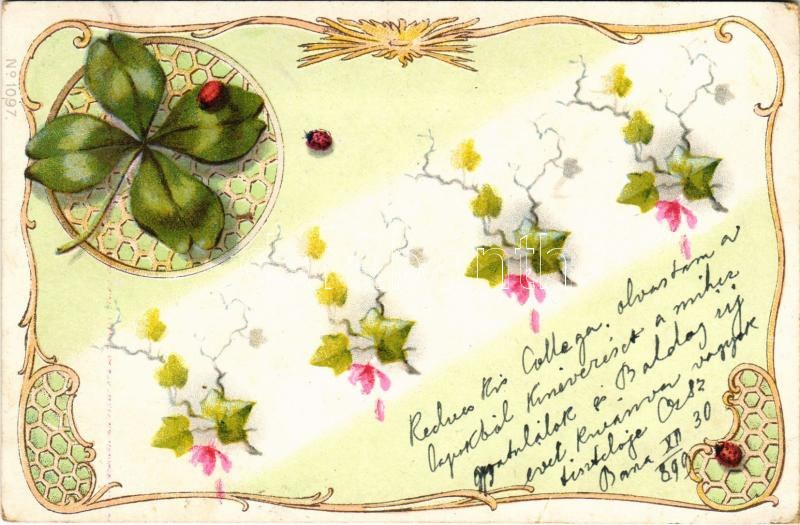 No 1097.
Kedves kis Collega, olvastam a
lapokból kinevezését a mihez
gratulálok & Boldog új
évet kivánva vagyok
tisztelője
XII 30
899